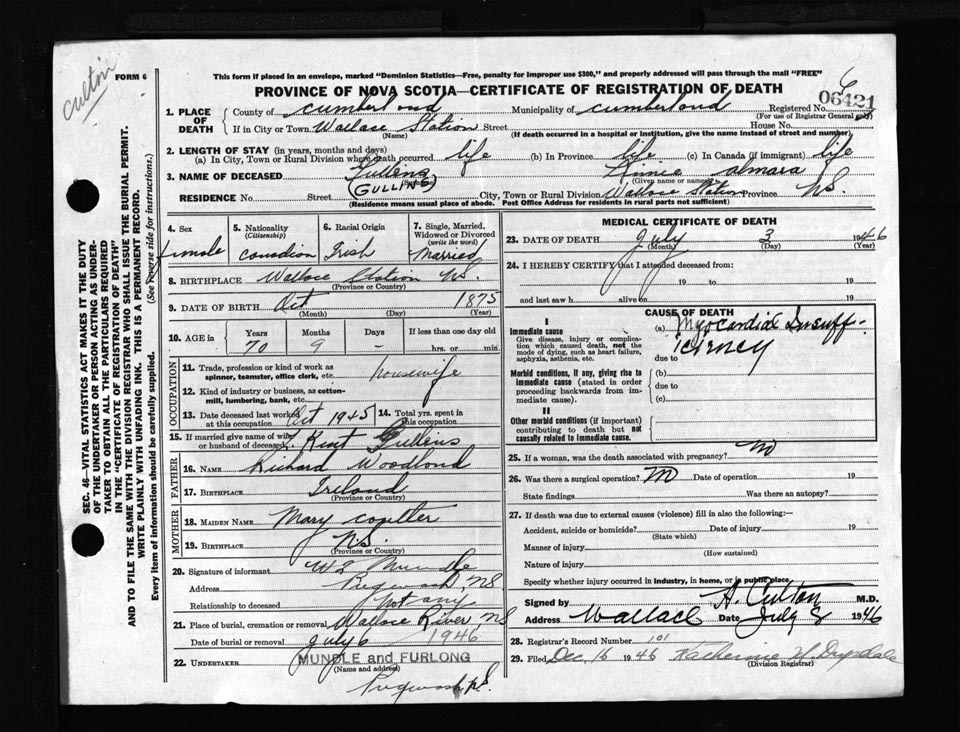 Culton
FORM 6
This form if placed in an envelope, marked "Dominion Statistics—Free, penalty for improper use $300," and properly addressed will pass through the mail "FREE"
PROVINCE OF NOVA SCOTIA—CERTIFICATE OF REGISTRATION OF DEATH
6
06421
1. PLACE OF DEATH
County of Cumberland Municipality of Cumberland Registered No.
(For use of Registrar General only)
If in City or Town Wallace Station Street House No.
(Name) (If death occurred in a hospital or institution, give the name instead of street and number)
2. LENGTH OF STAY (in years, months and days)
(a) In City, Town or Rural Division where death occurred life (b) In Province life (c) In Canada (if immigrant) life
3. NAME OF DECEASED Gullens Annie almara
(GULLING) (Given name or names)
RESIDENCE No. Street City, Town or Rural Division Wallace Station Province NS.
(Residence means usual place of abode. Post Office Address for residents in rural parts not sufficient)
4. Sex female
5. Nationality (Citizenship) Canadian
6. Racial Origin Irish
7. Single, Married, Widowed or Divorced (write the word) Married
8. BIRTHPLACE Wallace Station NS.
(Province or Country)
9. DATE OF BIRTH Oct 1875
(Month) (Day) (Year)
10. AGE in Years Months Days If less than one day old
70 9 - hrs. or min.
OCCUPATION
11. Trade, profession or kind of work as spinner, teamster, office clerk, etc. housewife
12. Kind of industry or business, as cotton-mill, lumbering, bank, etc.
13. Date deceased last worked at this occupation Oct 1945 14. Total yrs. spent in this occupation
15. If married give name of wife or husband of deceased Gullens
FATHER
16. NAME Richard Woodlond
17. BIRTHPLACE Ireland
(Province or Country)
MOTHER
18. MAIDEN NAME Mary
19. BIRTHPLACE N.S.
(Province or Country)
20. Signature of informant
Address Pugwash, NS
Relationship to deceased not any
21. Place of burial, cremation or removal Wallace River, NS
Date of burial or removal July 6 1946
22. UNDERTAKER MUNDLE and FURLONG
(Name and address)
Pugwash N.S.
MEDICAL CERTIFICATE OF DEATH
23. DATE OF DEATH July 3 1946
(Month) (Day) (Year)
24. I HEREBY CERTIFY that I attended deceased from:
19 to 19
and last saw h alive on 19
CAUSE OF DEATH
I
Immediate cause
Give disease, injury or complication which caused death, not the mode of dying, such as heart failure, asphyxia, asthenia, etc.
(a) Myocardial Insuff-
icirncy
due to
Morbid conditions, if any, giving rise to immediate cause (stated in order proceeding backwards from immediate cause).
(b)
due to
(c)
II
Other morbid conditions (if important) contributing to death but not causally related to immediate cause.
25. If a woman, was the death associated with pregnancy? no
26. Was there a surgical operation? no Date of operation 19
State findings Was there an autopsy?
27. If death was due to external causes (violence) fill in also the following:—
Accident, suicide or homicide? Date of injury 19
(State which)
Manner of injury
(How sustained)
Nature of injury
Specify whether injury occurred in industry, in home, or in public place
Signed by A. Culton M.D.
Address Wallace Date July 8 1946
28. Registrar's Record Number 101
29. Filed Dec. 16 1946 Katherine H Drysdale
(Division Registrar)
SEC. 46—VITAL STATISTICS ACT MAKES IT THE DUTY
OF THE UNDERTAKER OR PERSON ACTING AS UNDER-
TAKER TO OBTAIN ALL THE PARTICULARS REQUIRED
IN THE "CERTIFICATE OF REGISTRATION OF DEATH"
AND TO FILE THE SAME WITH THE DIVISION REGISTRAR WHO SHALL ISSUE THE BURIAL PERMIT.
WRITE PLAINLY WITH UNFADING INK. THIS IS A PERMANENT RECORD.
Every item of information should be carefully supplied. (See reverse side for instructions.)